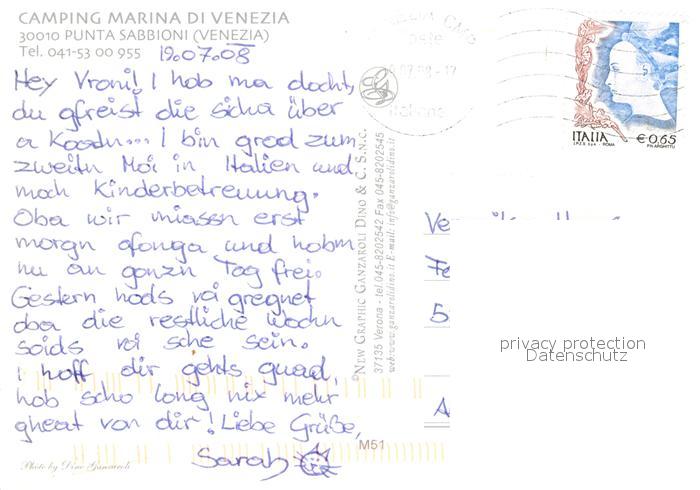 CAMPING MARINA DI VENEZIA
30010 PUNTA SABBIONI (VENEZIA)
Tel. 041-53 00 955 19.07.08
Hey Vroni! I hob ma docht,
du gfreist die sicha über
a Koatn... I bin grod zum
zweitn Moi in Italien und
moch Kinderbetreuung.
Oba wir miassn erst
morgn ofonga und hobm
nu an gonzn Tog frei.
Gestern hods voi gregnet
oba die restliche Wochn
soids voi sche sein.
i hoff dir gehts guad,
hob scho long nix mehr
gheat von dir! Liebe Grüße,
Sarah
Photo by Dino Ganzaroli
M51
©NEW GRAPHIC GANZAROLI DINO & C. S.N.C.
37135 Verona - tel.045-8202542 Fax 045-8202545
www.ganzarolidino.it E-mail: info@ganzarolidino.it
ITALIA
€0,65
I.P.Z.S. S.p.A. - ROMA
privacy protection
Datenschutz